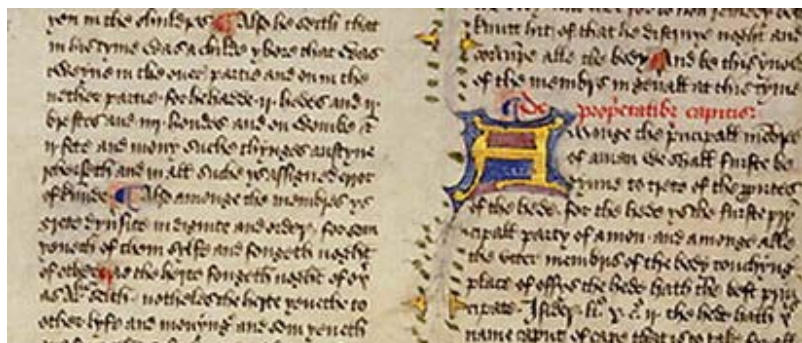 yen in the childres Also he seith that
in his tyme was a childe y bore that was
tweyne in the over partie and on in the
nother partie · for he hadde · ii · hedes and ii ·
brestes and iiii · hondes and on wombe &
ii fete and mony suche thynges austyne
reherseth and in all suche ys assigned erroͬ
of kynde Also amonge the membres ys
grete dyu͛site in dignite and order · for som
yeueth of them selfe and fongeth noght
of other as the herte fongeth noght of oþ͛
as Ar͛ seith · notheles the herte yeueth to
other lyfe and mouyng͛ and som yeueth
knitt hit · of that he distruye noght and
alle the body And be this ynow
of the membris in gen͛all at this tyme
de prop͛etatibꝫ capitis ·
Amonge the p͛ncipall membres
of a mon we shall furste be
gynne to trete of the p͛tes
of the hede · for the hede ys the furste p͛n
cipall party of a mon · and amonge alle
the vtter membris of the body touchyng͛
place of offys the hede hath the best prin
cipate · Isider · li͛ · x · c͛ · ii · the hede hath þ͛
name caput of cape that is to take for all